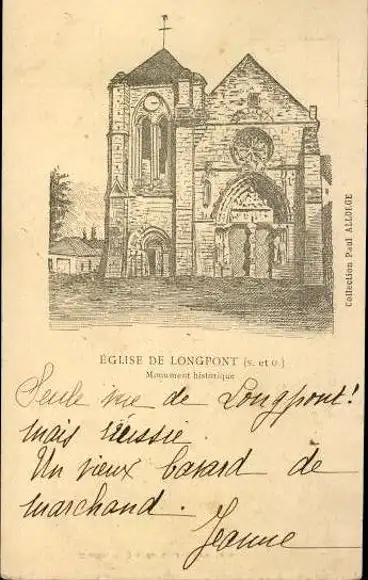 Collection Paul ALLORGE
ÉGLISE DE LONGPONT (S. et O.)
Monument historique
Seule vue de Longpont!
mais réussie.
Un vieux bavard de
marchand.
Jeanne